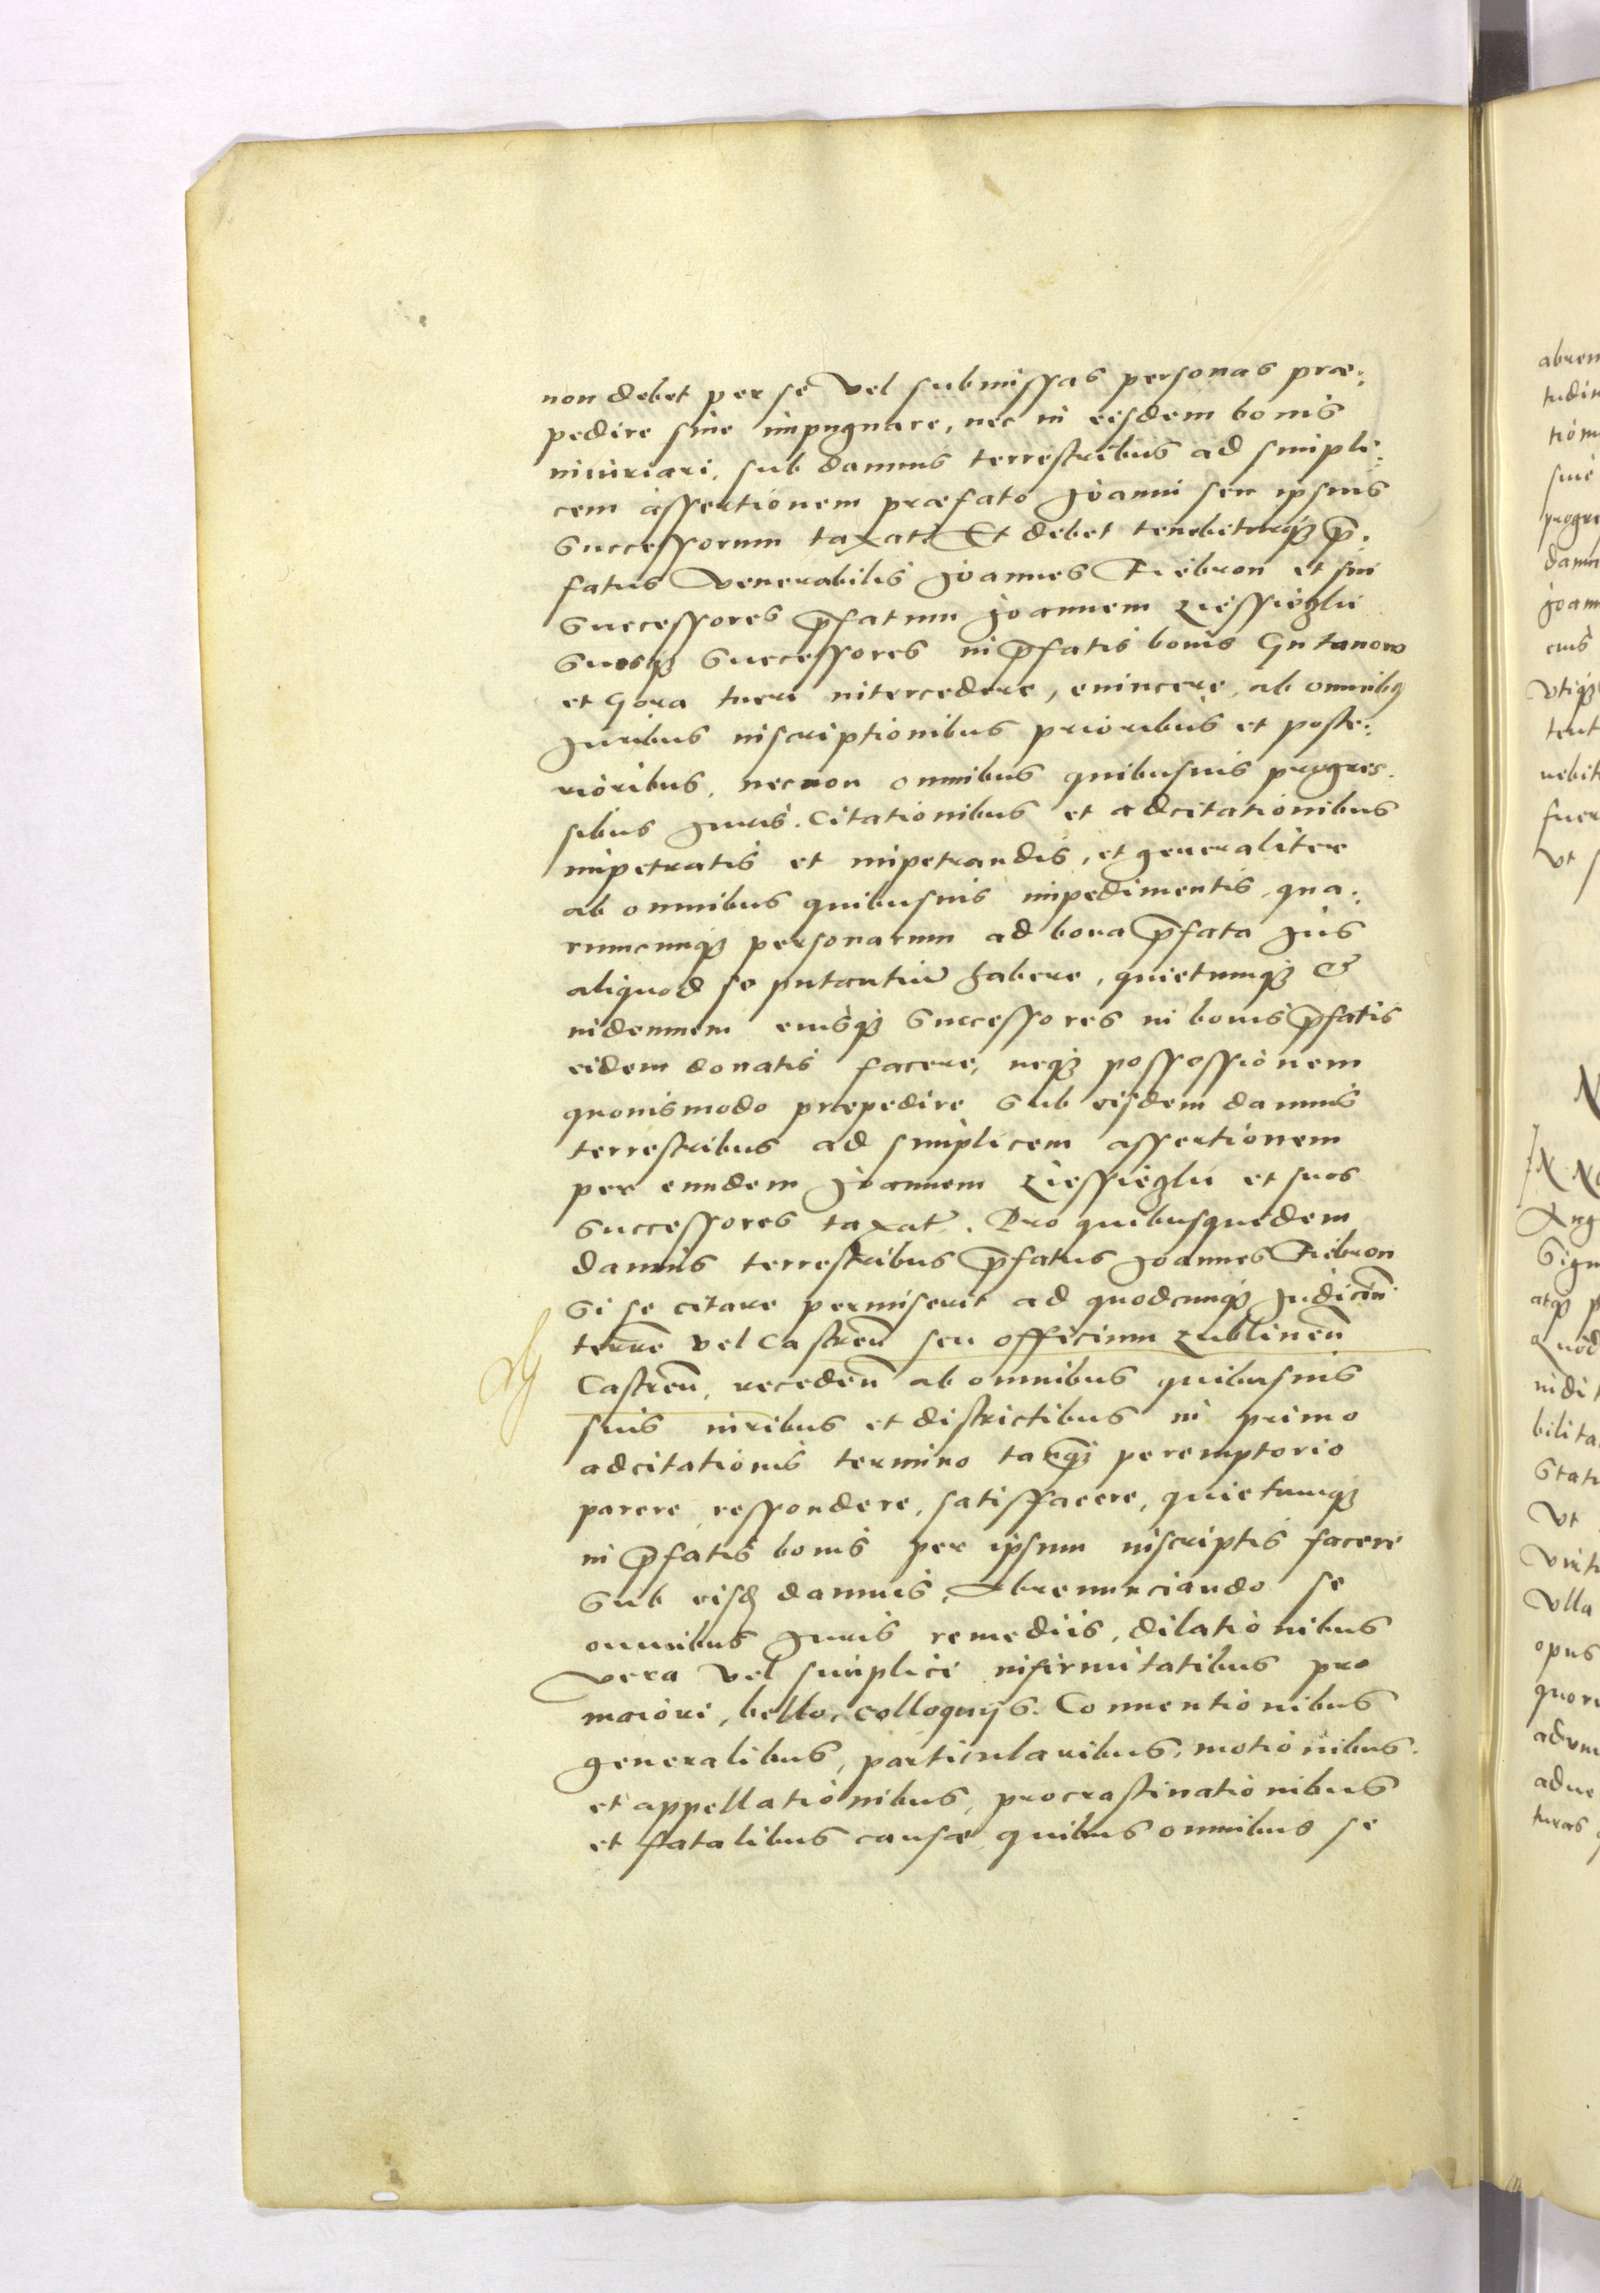 non debet per se vel submissas personas præ:
pedire siue impugnare, nec in eisdem bonis
iniuriari, sub damnis terrestribus ad simpli:
cem assertionem præfato Joanni seu ipsius
Successorum taxatis Et debet tenebiturq3 p̄:
fatus Venerabilis Joannes Fiebron et sui
Successores p̄fatum Joannem
Suosq3 Successores in p̄fatis bonis Gutanow
et Gora tueri intercedere, euincere, ab omnibq3
Juribus inscriptionibus prioribus et poste:
rioribus, necnon omnibus quibusuis progres:
sibus Juris. Citationibus et adcitationibus
impetratis et impetrandis, et generaliter
ab omnibus quibusuis impedimentis qua:
rumcunq3 personarum ad bona p̄fata Jus
aliquod se putantiū habere, quietumq3 &
indemnem eiusq3 Successores in bonis p̄fatis
eidem donatis facere, neq3 possessionem
quouismodo præpedire Sub eisdem damnis
terrestribus ad simplicem assertionem
per eundem Joannem et suos
Successores taxat. Pro quibusquedem
damnis terrestribus p̄fatus Joannes Fiebron
Si se citare permiserit ad quodcunq3 Judiciū
terrē vel Castreñ seu officium Lublineñ
Castreñ, recedeñ ab omnibus quibusuis
suis iuribus et districtibus in primo
adcitationis termino tanq3 peremptorio
parere, respondere, satisfacere, quietumq3
in p̄fatis bonis per ipsum inscriptis facere
Sub eisd damnis, Abrenunciando se
omnibus Juris remediis, dilationibus
vera vel simplici infirmitatibus pro
maiori, bello, colloquijs. Conuentionibus
generalibus, particularibus, motionibus.
et appellationibus, procrastinationibus
et fatalibus causæ quibus omnibus se